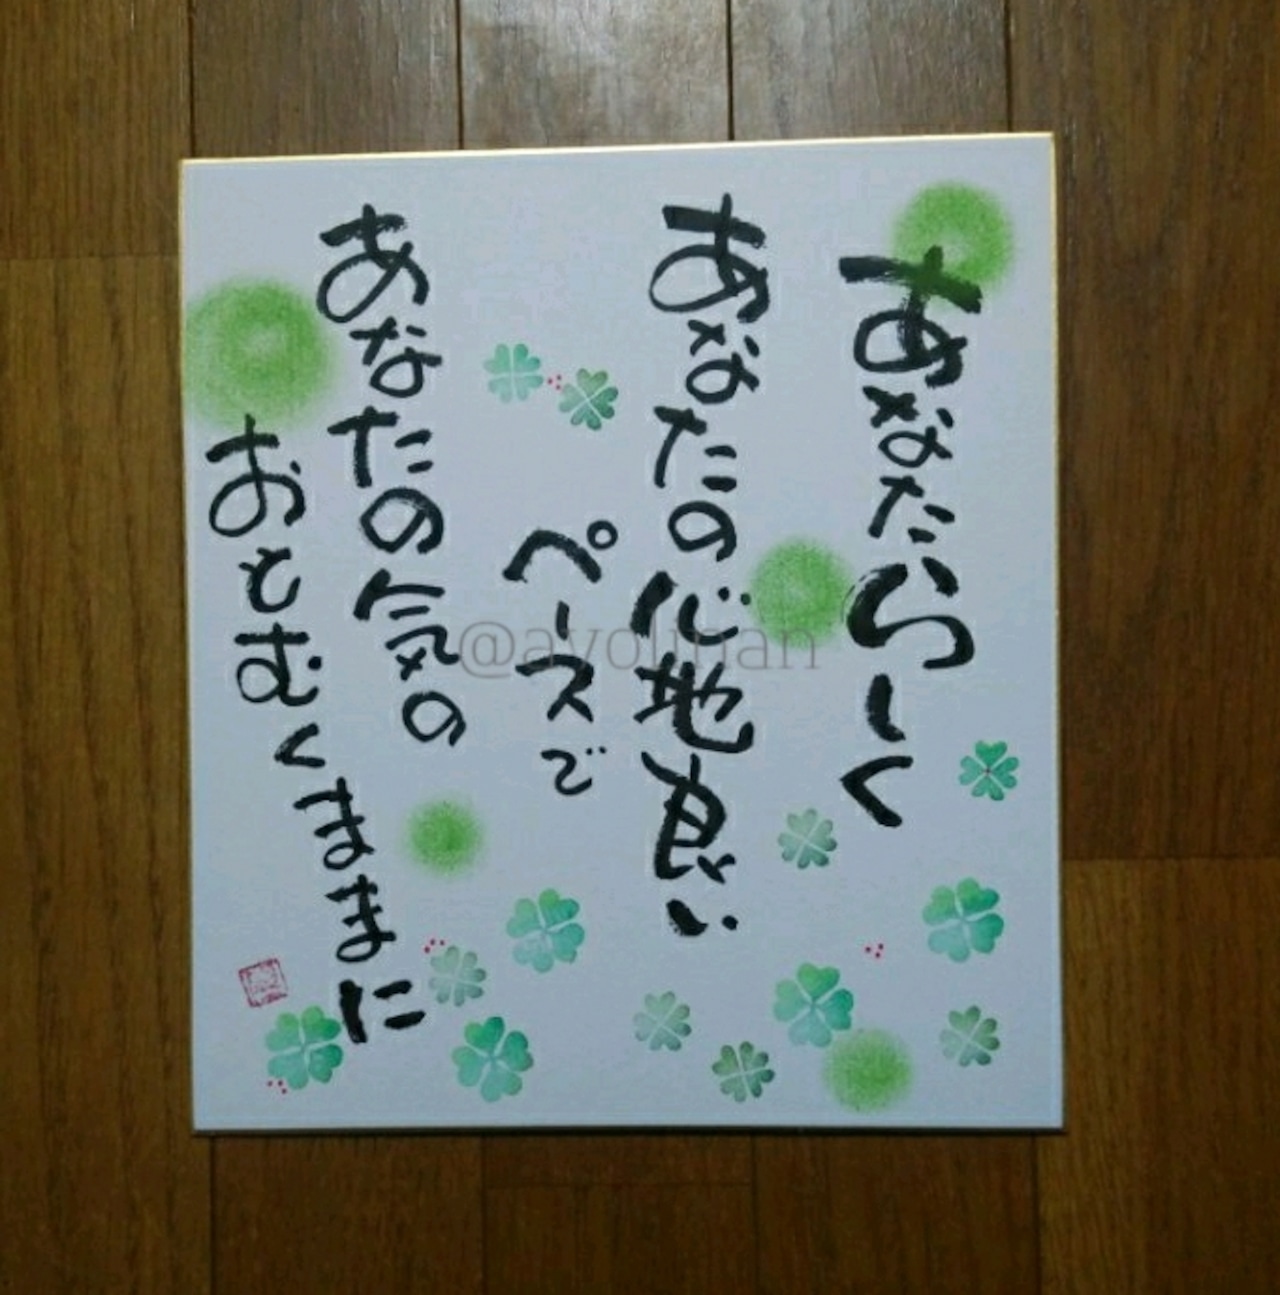 あなたらしく
あなたの心地良い
ペースで
あなたの気の
おもむくままに
@ayounan